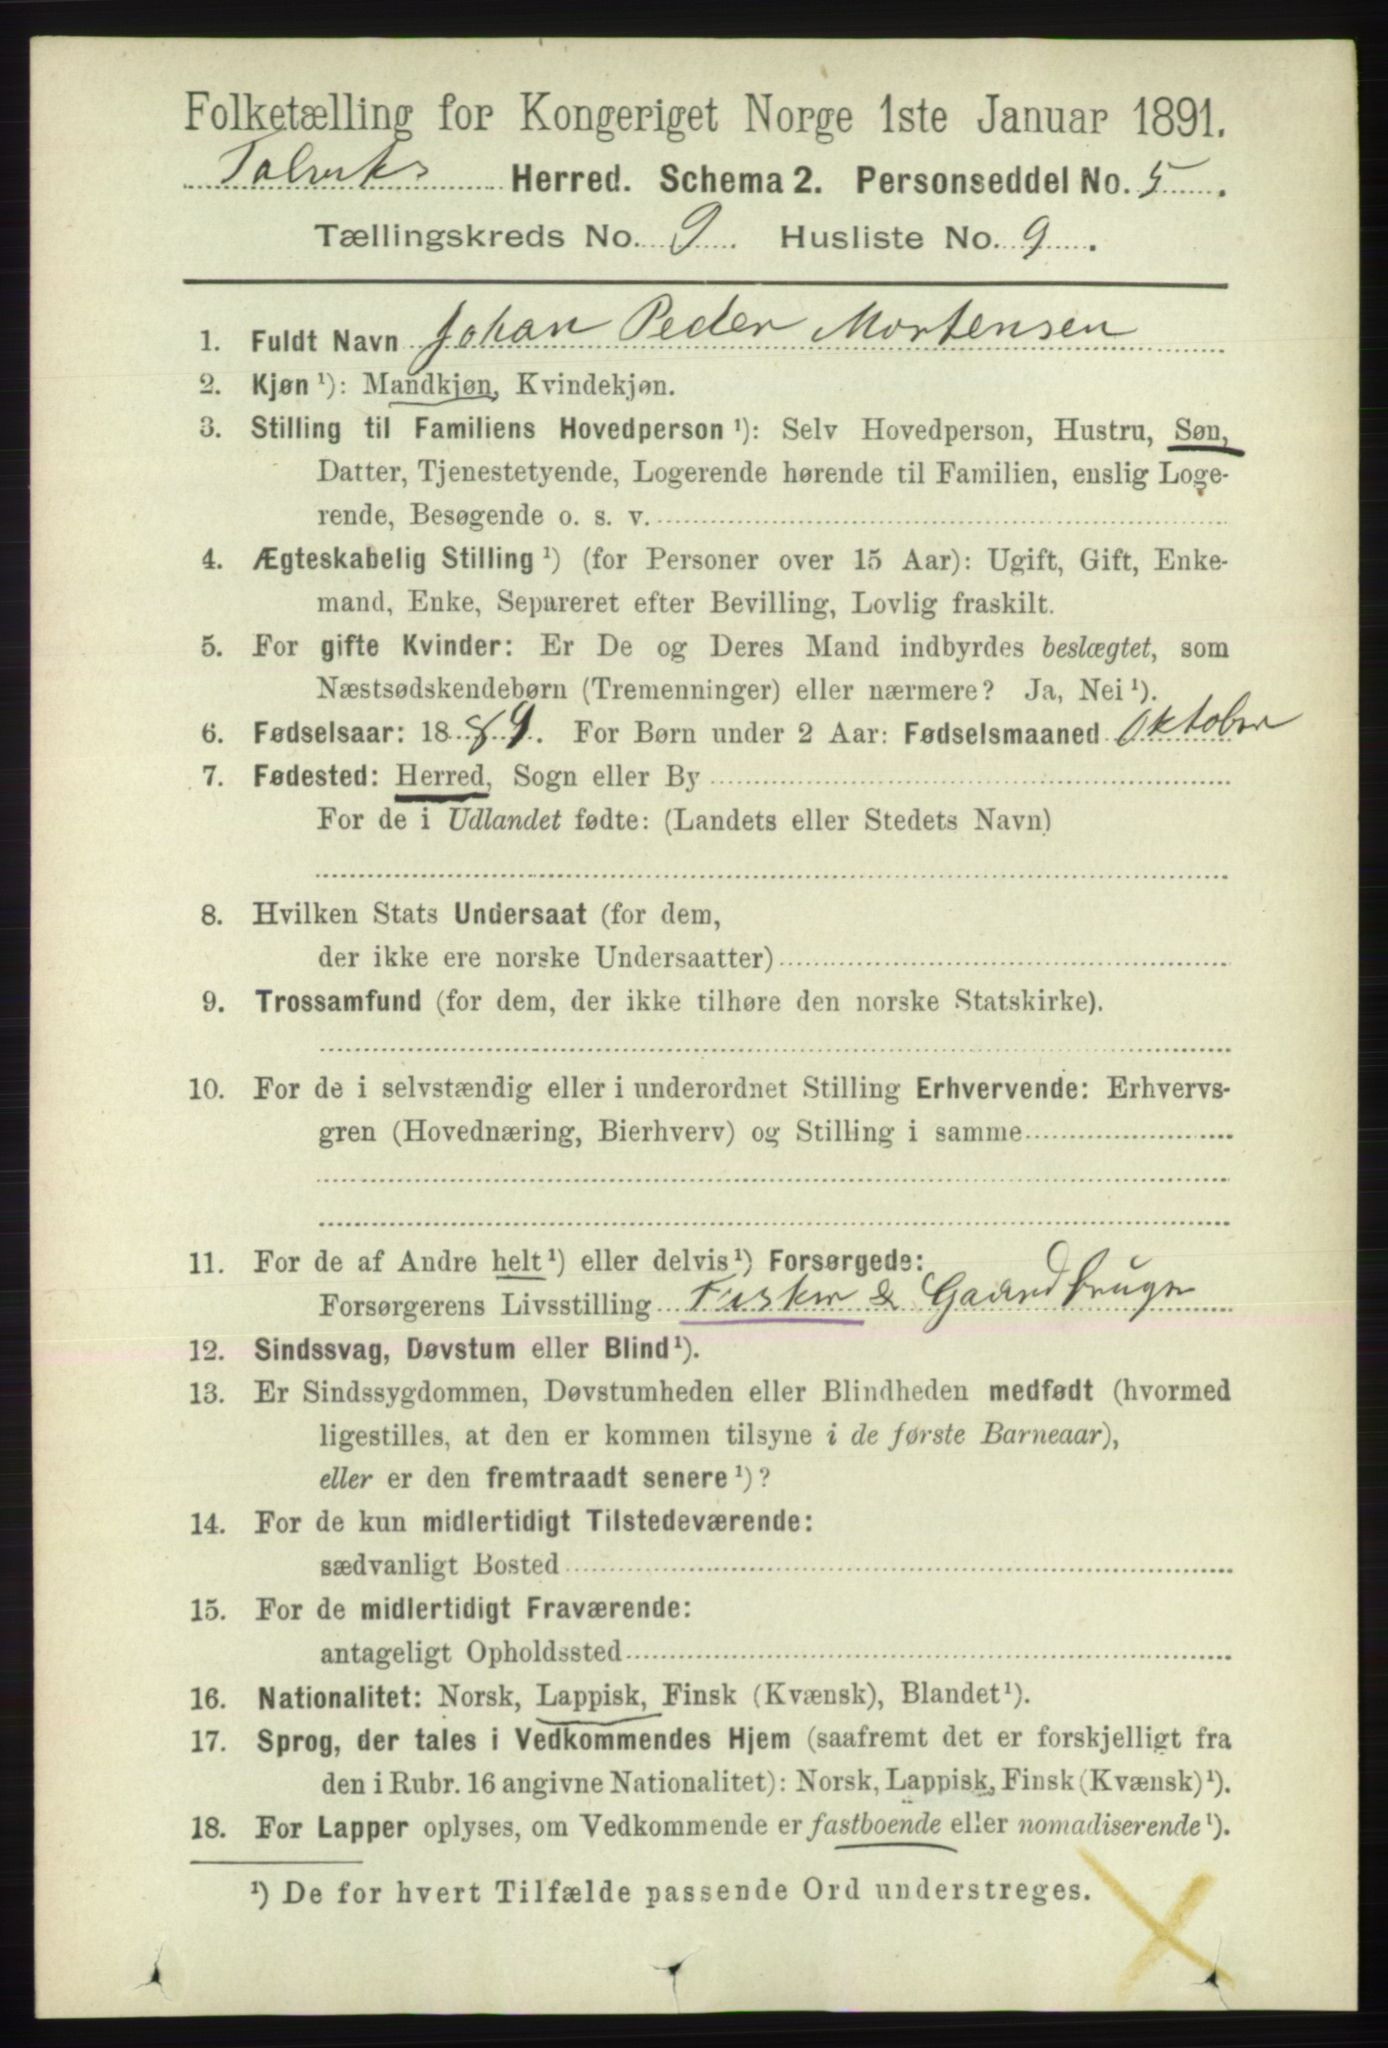 Folketælling for Kongeriget Norge 1ste Januar 1891.
Talviks Herred. Schema 2. Personseddel No. 5.
Tællingskreds No. 9. Husliste No. 9.
1. Fuldt Navn Johan Peder Mortensen
2. Kjøn ¹): Mandkjøn, Kvindekjøn.
3. Stilling til Familiens Hovedperson ¹): Selv Hovedperson, Hustru, Søn,
Datter, Tjenestetyende, Logerende hørende til Familien, enslig Loge-
rende, Besøgende o. s. v.
4. Ægteskabelig Stilling ¹) (for Personer over 15 Aar): Ugift, Gift, Enke-
mand, Enke, Separeret efter Bevilling, Lovlig fraskilt.
5. For gifte Kvinder: Er De og Deres Mand indbyrdes beslægtet, som
Næstsødskendebørn (Tremenninger) eller nærmere? Ja, Nei ¹).
6. Fødselsaar: 1889. For Børn under 2 Aar: Fødselsmaaned Oktober
7. Fødested: Herred, Sogn eller By
For de i Udlandet fødte: (Landets eller Stedets Navn)
8. Hvilken Stats Undersaat (for dem,
der ikke ere norske Undersaatter)
9. Trossamfund (for dem, der ikke tilhøre den norske Statskirke).
10. For de i selvstændig eller i underordnet Stilling Erhvervende: Erhvervs-
gren (Hovednæring, Bierhverv) og Stilling i samme
11. For de af Andre helt ¹) eller delvis ¹) Forsørgede:
Forsørgerens Livsstilling Fisker & Gaardbruger
12. Sindssvag, Døvstum eller Blind ¹).
13. Er Sindssygdommen, Døvstumheden eller Blindheden medfødt (hvormed
ligestilles, at den er kommen tilsyne i de første Barneaar),
eller er den fremtraadt senere ¹)?
14. For de kun midlertidigt Tilstedeværende:
sædvanligt Bosted
15. For de midlertidigt Fraværende:
antageligt Opholdssted
16. Nationalitet: Norsk, Lappisk, Finsk (Kvænsk), Blandet ¹).
17. Sprog, der tales i Vedkommendes Hjem (saafremt det er forskjelligt fra
den i Rubr. 16 angivne Nationalitet): Norsk, Lappisk, Finsk (Kvænsk) ¹).
18. For Lapper oplyses, om Vedkommende er fastboende eller nomadiserende ¹).
¹) De for hvert Tilfælde passende Ord understreges.